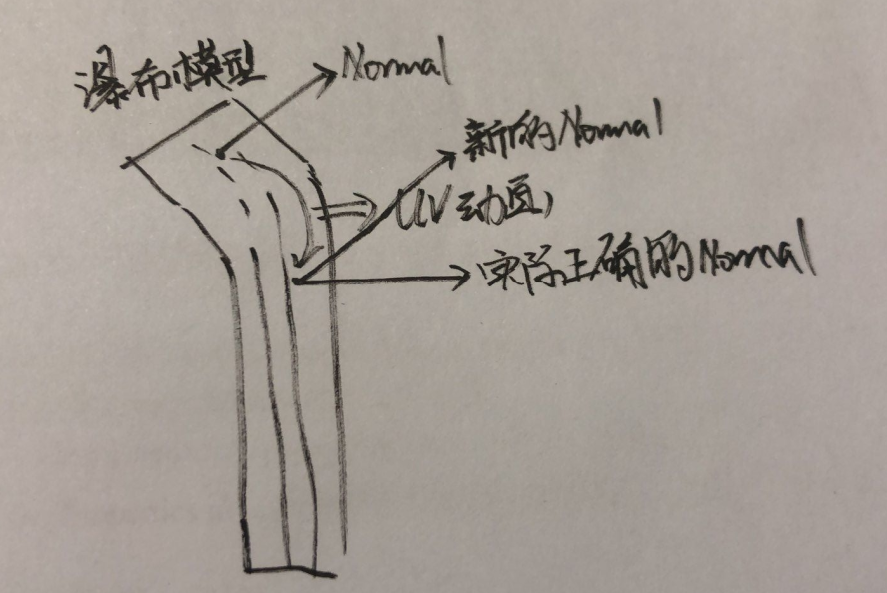 瀑布模型
Normal
新的Normal
UV动画
实际正确的Normal